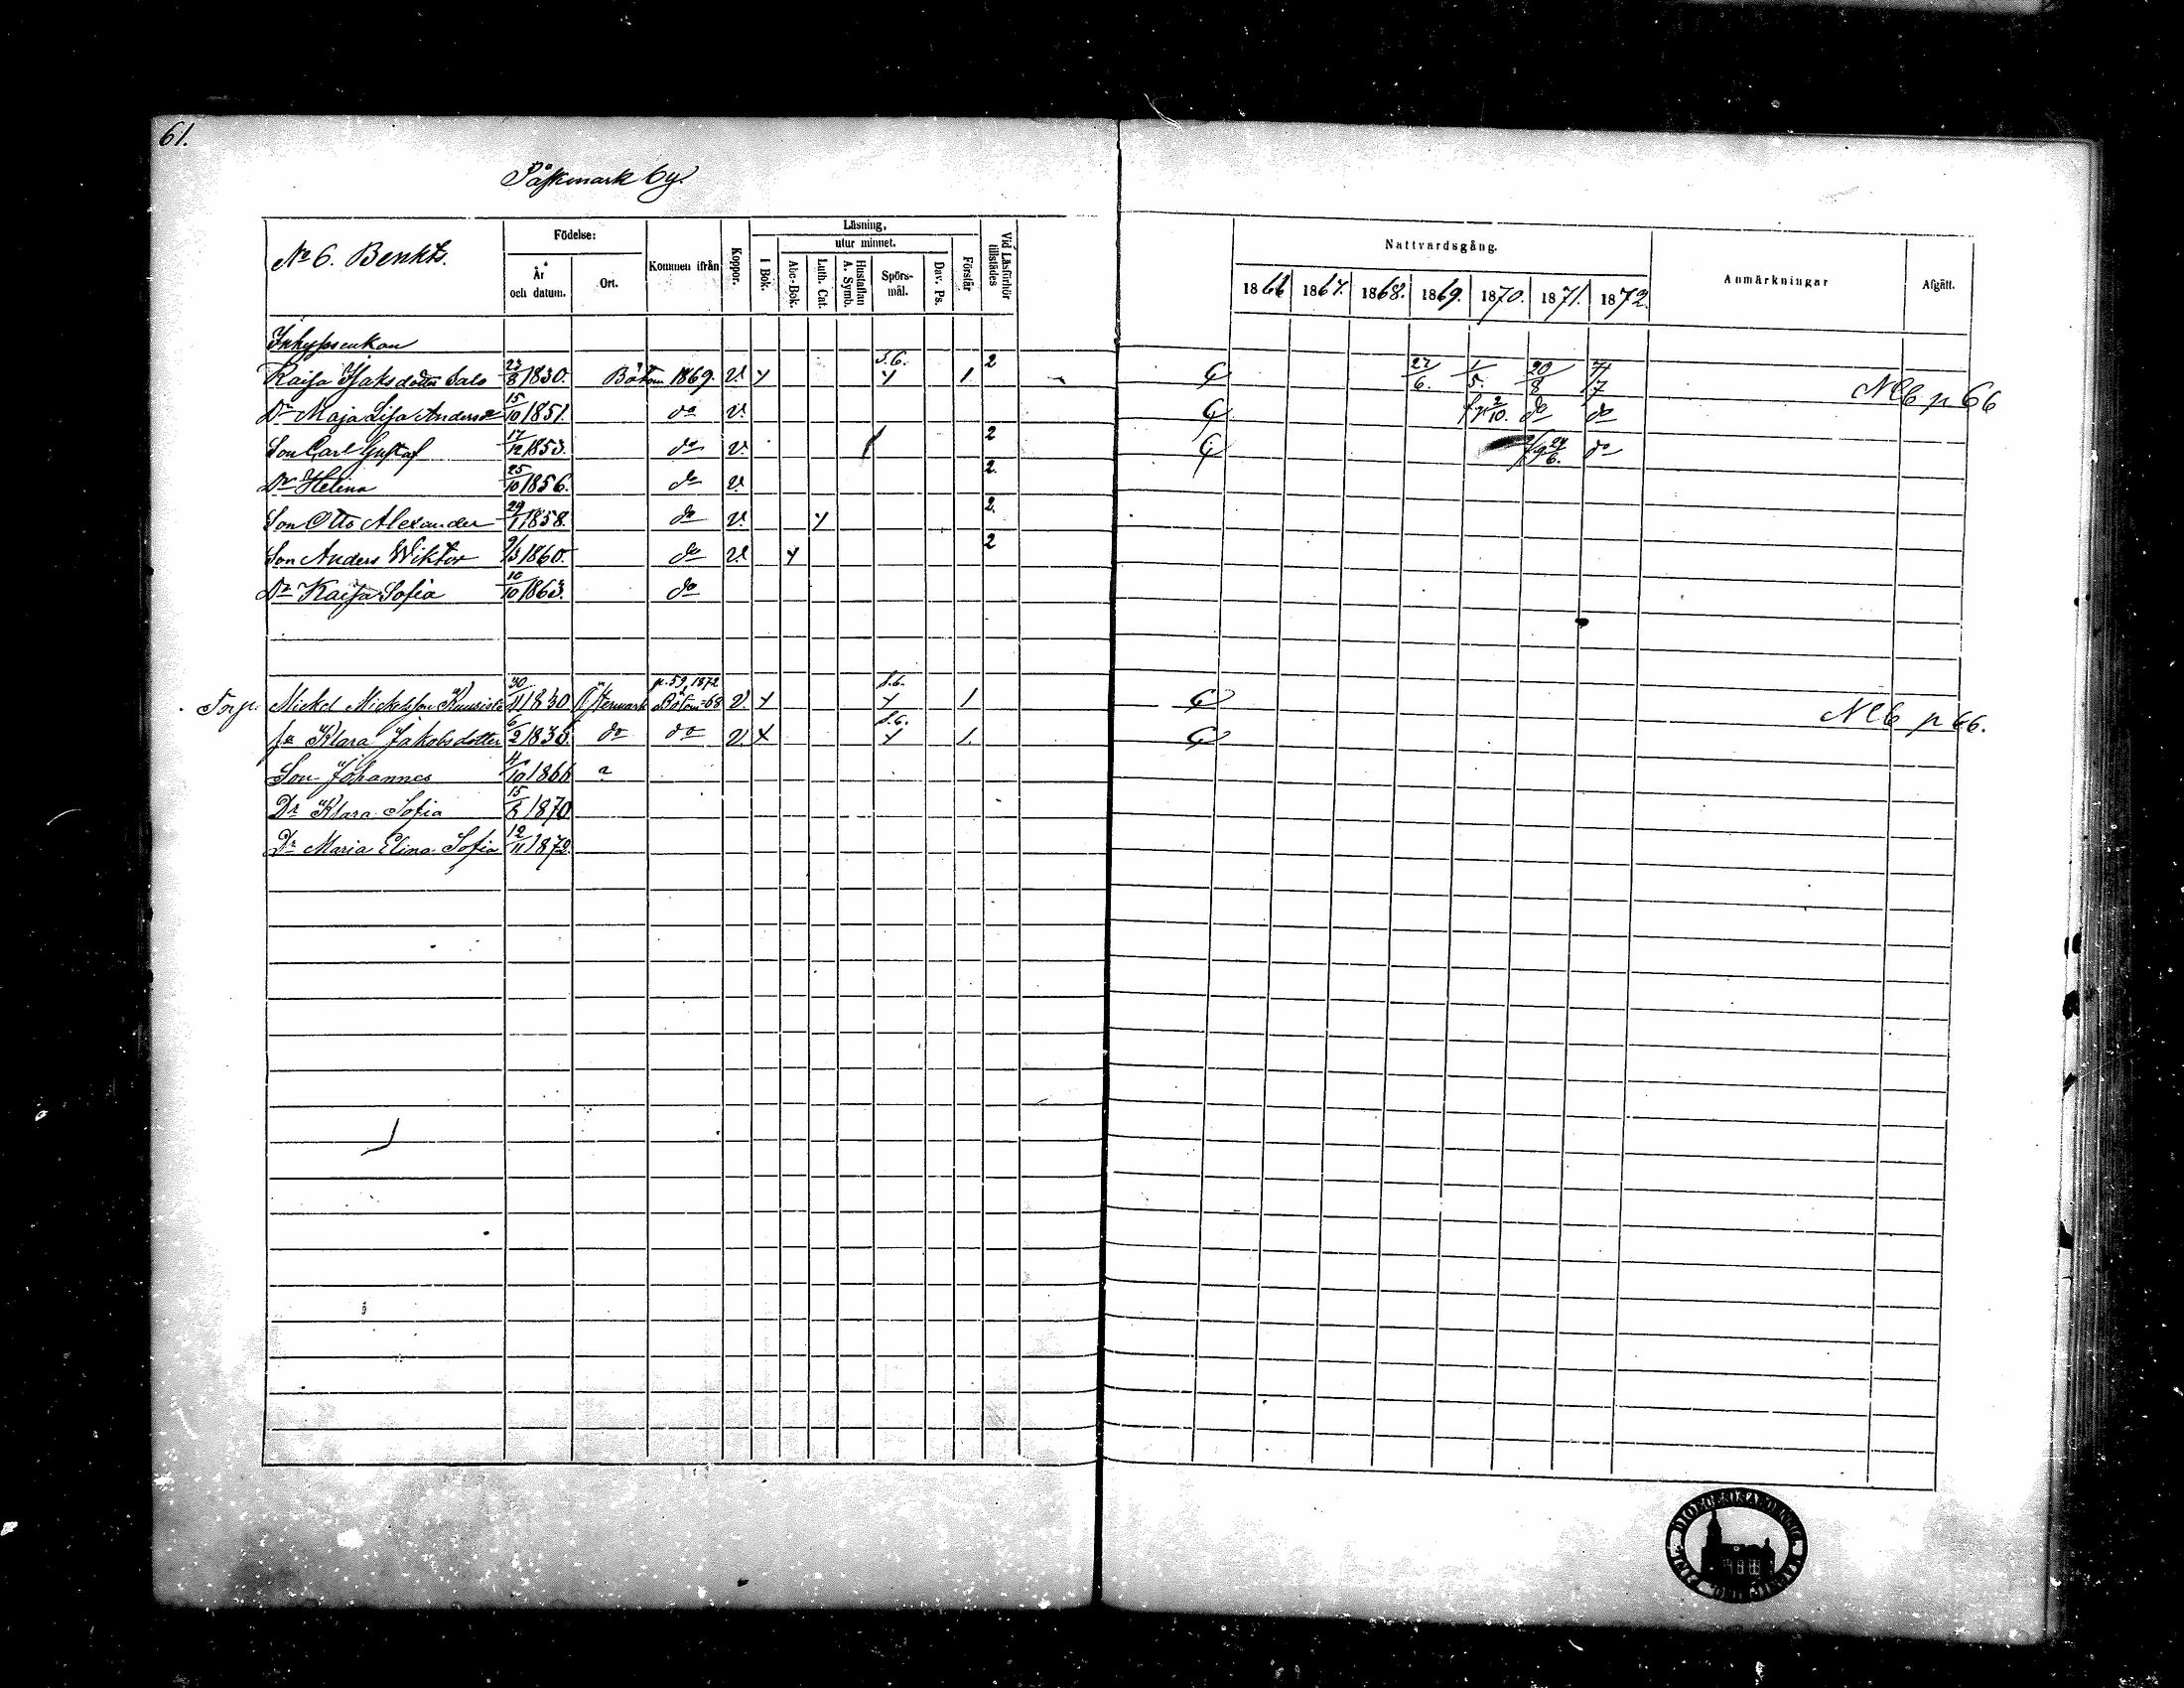 61.
Påskmark by.
No 6. Benkts.
Födelse:
År och datum.
Ort.
Kommen ifrån
Koppor.
Läsning.
I Bok.
utur minnet.
Abc-Bok.
Luth. Cat.
Hustaflan A. Symb.
Spörs-mål.
Dav. Ps.
Förstår
Vid Läsförhör tillstädes
Nattvardsgång.
1866 1867. 1868. 1869. 1870. 1871. 1872.
Anmärkningar
Afgått.
Inhysesenkan
Kaisa Isaksdotter Salo 23/8 1830. Bötom 1869. V. S.6. 1 2 22/6. 1/5. 20/8 7/7 NCb p 66
Dr Maja Lisa Andersdr 15/10 1851. do V. 2/10. do do
Son Carl Gustaf 17/12 1853. do V. 2 24/6. do
Dr Helina 25/10 1856. do V. 2.
Son Otto Alexander 29/1 1858. do V. 2.
Son Anders Wiktor 9/3 1860. do V. 2
Dr Kaisa Sofia 10/10 1863. do
Torp. Mickel Mickelsson Kuusisto 30/11 1830 Östermark p. 59, 1872 Bötom -68 V. S.6. 1 NCb p 66.
h. Klara Jakobsdotter 6/2 1835. do do V. S.6. 1.
Son Johannes 4/10 1866
Dr Klara Sofia 15/8 1870
Dr Maria Elina Sofia 12/11 1872.